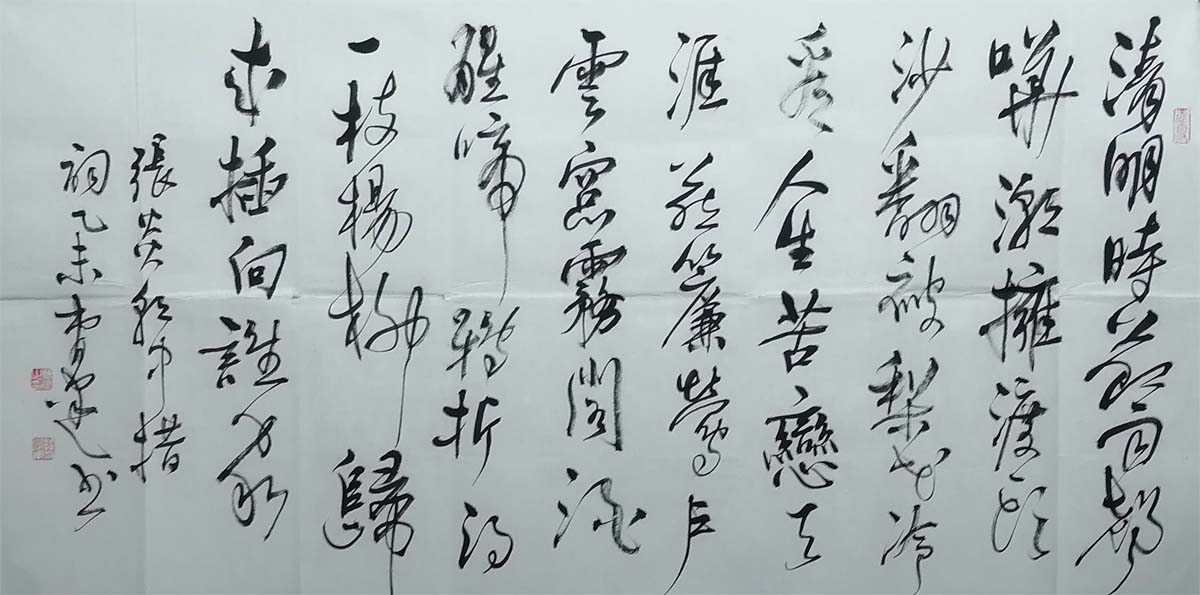 清明時節雨聲
嘩潮擁渡頭
沙翻被梨花冷
看人生苦戀天
涯燕簾鶯户
雲窓霧閣酒
醒啼鴉折得
一枝楊柳歸
來插向誰家
張炎朝中措
詞乙未書